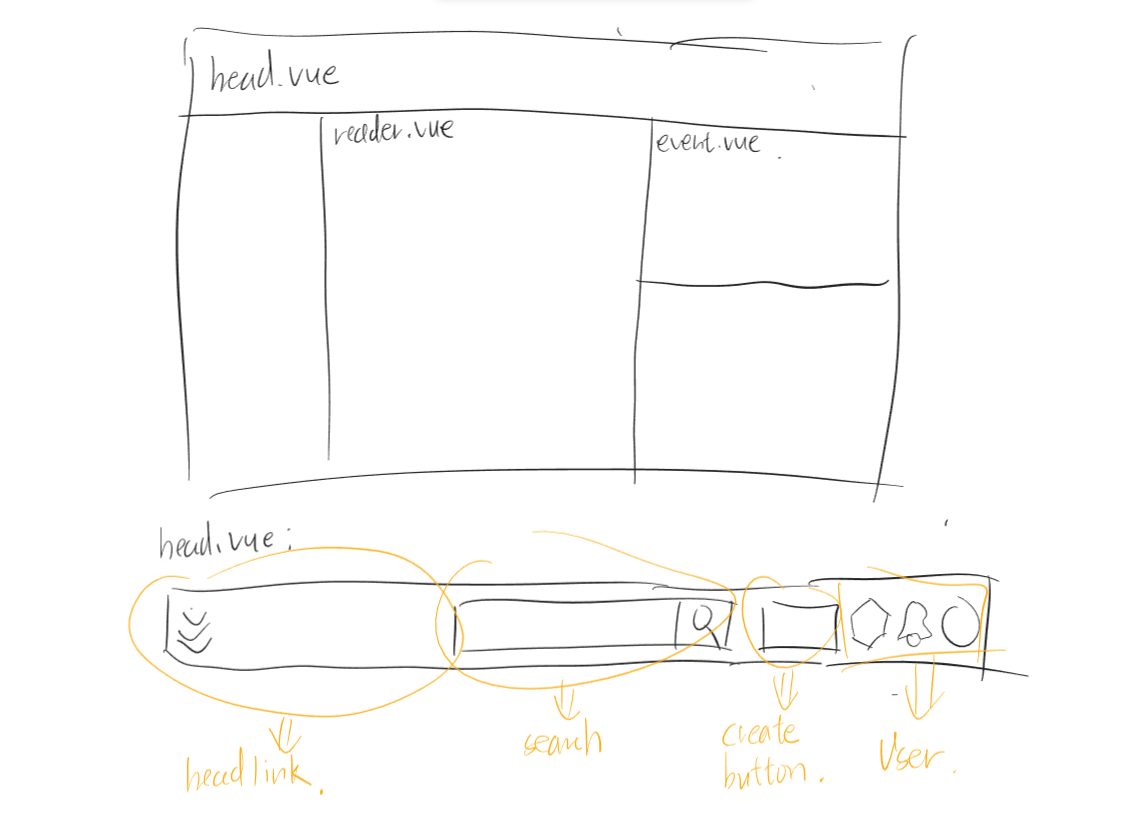 head.vue
reader.vue
event.vue.
head.vue:
headlink.
search
create
button.
User.